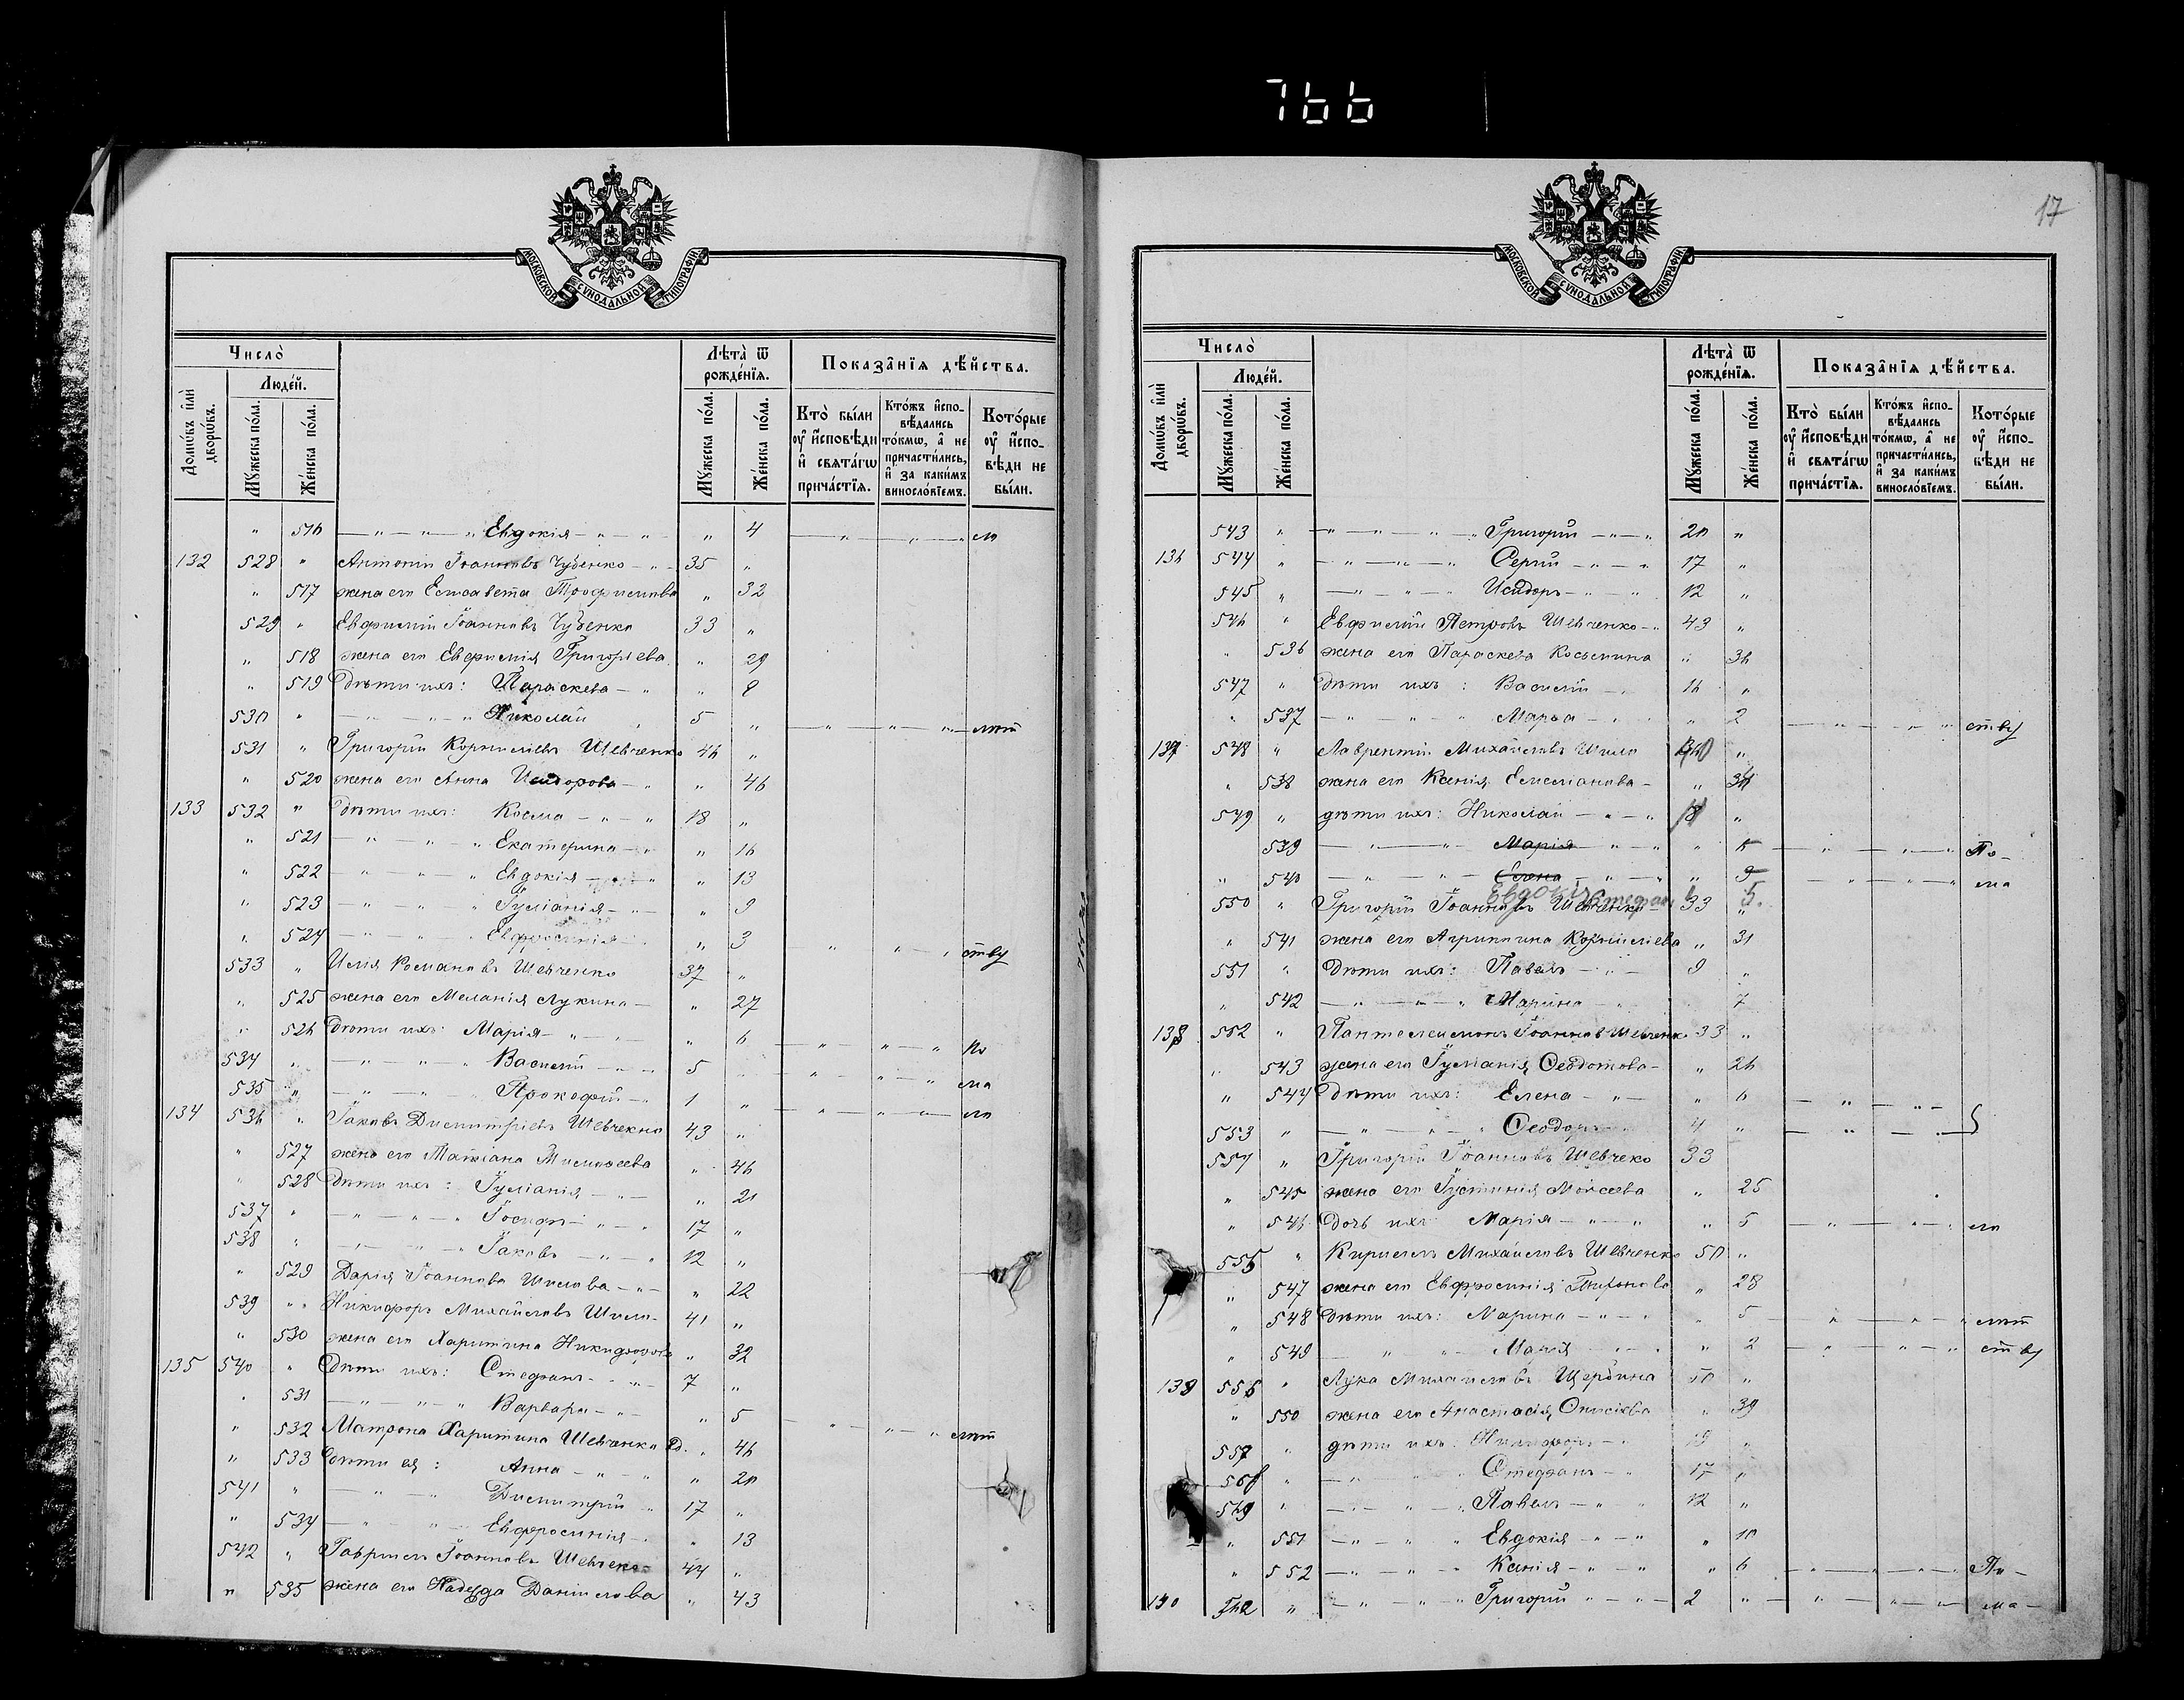 766
17
МОСКОВСКОЙ СУНОДАЛЬНОЙ ТИПОГРАФІИ
Число̀
Домѡ́въ и҆лѝ дворѡ́въ.
Люде́й.
Мꙋ́жеска по́ла.
Же́нска по́ла.
Лѣ́та ѿ рожде́нїѧ.
Мꙋ́жеска по́ла.
Же́нска по́ла.
Показа̑нїѧ дѣ́йства.
Кто̀ бы́ли оу҆ и҆́сповѣди и҆ свѧта́гѡ прича́стїѧ.
Кто́жъ и҆сповѣ́дались то́кмѡ, а҆ не причасти́лись, и҆ за каки́мъ винослóвїемъ.
Кото́рые оу҆ и҆́сповѣди не бы́ли.
" 516 — " — " — " Евдокія — " — " " 4 — " " — " ло
132 528 " Антоній Іоанновъ Чубенко — " — 35 "
" 517 жена его Елисавета Трофимова " 32
529 " Евфимій Іоанновъ Чубенко 33 "
" 518 жена его Евфимія Григорьева " 29
" 519 Дѣти ихъ: Параскева — " " 8
530 " — " — " — " Николай 5 " — " " — " — лѣт
531 " Григорій Корниліевъ Шевченко 46 "
" 520 жена его Анна Исидорова — " " 46
133 532 " Дѣти ихъ: Косма — " — " 18 "
" 521 — " — " — " Екатерина — " " 16
" 522 — " — " — " Евдокія — " — " " 13
" 523 — " — " — " Іуліанія — " — " 9
" 524 — " — " — " Евфросинія " 3 " " — " ству
533 " Илія Космановъ Шевченко 37 "
" 525 жена его Меланія Лукина — " 27
" 526 Дѣти ихъ: Марія — " — " — " 6 — " " — " по
534 " — " — " — " Василій — " — 5 " " — " ма
535 " — " — " — Прокофій — " 1 " — " " — " ло
134 536 " Іаковъ Димитріевъ Шевчекно 43 "
" 527 жена его Татіана Тимофеева " 46
" 528 Дѣти ихъ: Іуліанія — " — " 21
537 " — " — " — " Іосифъ — " — " 17 "
538 " — " — " — " Іаковъ — " — " 12 "
" 529 Дарія Іоаннова Шилова — " — " 22
539 " " Никифоръ Михайловъ Шило — 41 "
" 530 жена его Харитина Никифорова " 32
135 540 " Дѣти ихъ: Стефанъ — " — " 7 "
" 531 — " — " — " Варвара — " — " 5 — " " — " лѣт
" 532 Матрона Харитина Шевченко вд. " 46
" 533 Дѣти ея: Анна — " — " " 20
541 " — " — " Димитрій " 17 "
" 534 — " — " — Евфросинія — " " 13
542 " Гавріилъ Іоанновъ Шевчеко 44 "
" 535 жена его Надежда Даніилова " 43
Число̀
Домѡ́въ и҆лѝ дворѡ́въ.
Люде́й.
Мꙋ́жеска по́ла.
Же́нска по́ла.
Лѣ́та ѿ рожде́нїѧ.
Мꙋ́жеска по́ла.
Же́нска по́ла.
Показа̑нїѧ дѣ́йства.
Кто̀ бы́ли оу҆ и҆́сповѣди и҆ свѧта́гѡ прича́стїѧ.
Кто́жъ и҆сповѣ́дались то́кмѡ, а҆ не причасти́лись, и҆ за каки́мъ винослóвїемъ.
Кото́рые оу҆ и҆́сповѣди не бы́ли.
543 " — " — " — " Григорій — " — " 20 "
136 544 " — " — " — " Сергій — " — " 17 "
545 " — " — " — Исидоръ — " — " 12 "
546 " Евфимій Петровъ Шевченко — " 43 "
" 536 жена его Параскева Косьмина " 36
547 " Дѣти ихъ: Василій — " 16 "
" 537 — " — " — " Марѳа — " " 2 — " — " " ству
137 548 " Лаврентій Михайловъ Шило 40 "
" 538 жена его Ксенія Емеліанова — " 36
549 " дѣти ихъ: Николай — " — " 18 "
539 — " — " — Марія — " — " " — " — " — " По-
" 540 — " — " — Елена — " — " " 9 " " — " ма
Евдокія Стефан 5.
550 " Григорій Іоанновъ Шевченко 33 "
" 541 жена его Агрипина Корниліева " 31
551 " Дѣти ихъ: Павелъ — " — 9 "
" 542 — " — " — " Марина — " 7
138 552 " Пантелеимонъ Іоанновъ Шевченк. 33 "
" 543 жена его Іуліанія Ѳеодотова — " 26
" 544 Дѣти ихъ: Елена — " — " 6 — " — " —
553 " — " — " — " Ѳеодоръ 4 " — " — " —
554 " Григорій Іоанновъ Шевчеко 33
" 545 жена его Іустинія Моисеева " 25
" 546 Дочь ихъ Марія — " — " " 5 " — " — " ло
555 " Кириллъ Михайловъ Шевченко 50 "
" 547 жена его Евфросинія Тихонова " 28
" 548 Дѣти ихъ: Марина — " — " " 5 — " — " — " лѣт
" 549 — " — " — Марія — " — " " 2 — " — " — " ству
139 556 " Лука Михайловъ Щербина 50 "
" 550 жена его Анастасія Онисіева " 39
557 " дѣти ихъ: Никифоръ — " 19 "
" — " — " Стефанъ — " 17 "
" — " — " — " Павелъ — " 12 "
" 551 — " — " Евдокія — " — " " 10
" 552 — " — " — Ксенія — " — " " 6 — " — " — " По-
140 " — " — " — " Григорій — " — " 2 " — " — " — " ма-